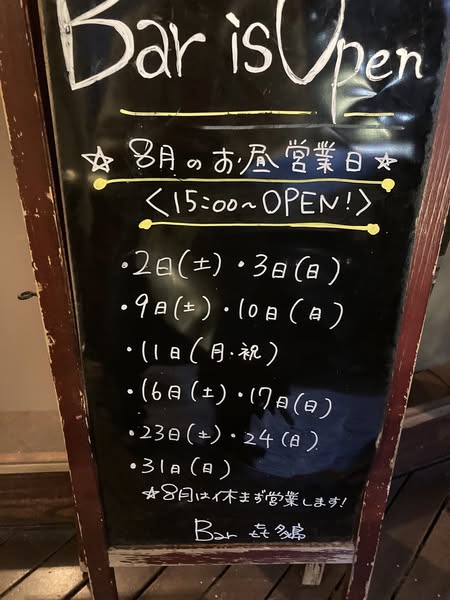 Bar is Open
☆ 8月のお昼営業日 ☆
<15:00~OPEN!>
・2日(土)・3日(日)
・9日(土)・10日(日)
・11日(月・祝)
・16日(土)・17日(日)
・23日(土)・24(日)
・31日(日)
☆8月は休まず営業します!
Bar 㐂多嶌